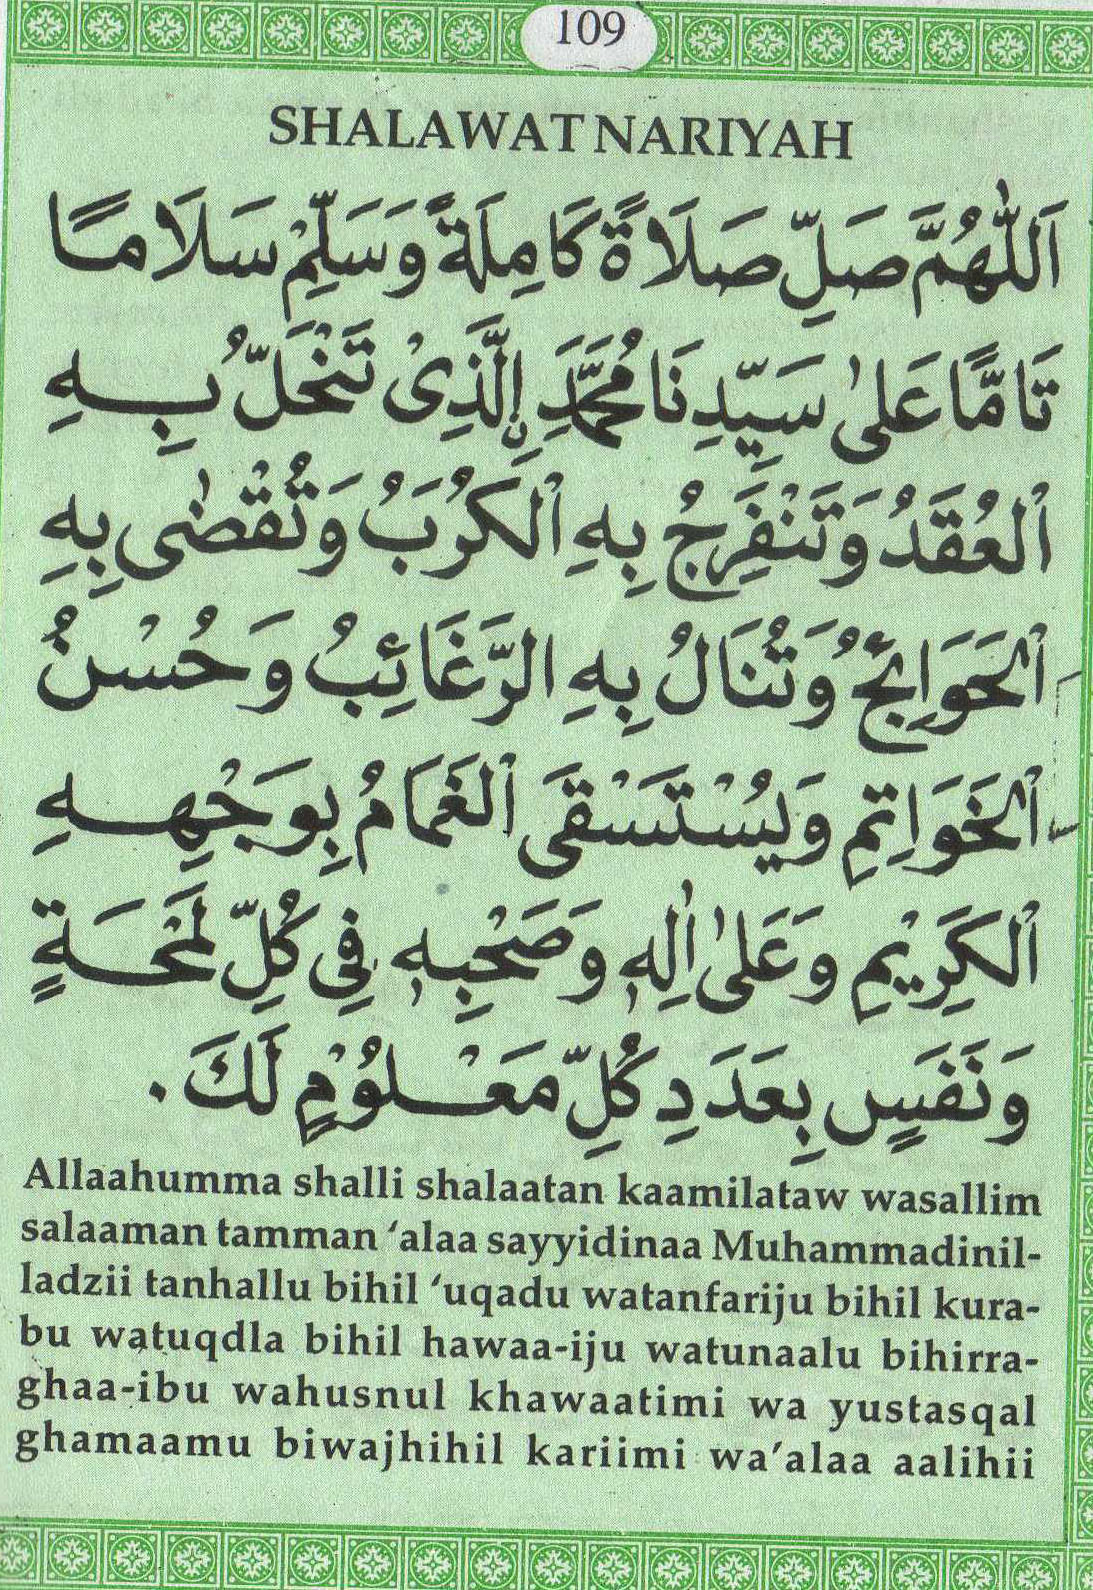 109
SHALAWAT NARIYAH
اَللّٰهُمَّ صَلِّ صَلَاةً كَامِلَةً وَسَلِّمْ سَلَامًا
تَامًّا عَلٰى سَيِّدِنَا مُحَمَّدَ ِنِلَّذِىْ تَنْحَلُّ بِهِ
اْلعُقَدُ وَتَنْفَرِجُ بِهِ اْلكُرَبُ وَتُقْضٰى بِهِ
اْلحَوَائِجُ وَتُنَالُ بِهِ الرَّغَائِبُ وَحُسْنُ
اْلخَوَاتِمِ وَيُسْتَسْقَى اْلغَمَامُ بِوَجْهِهِ
اْلكَرِيْمِ وَعَلٰى اٰلِهٖ وَصَحْبِهٖ فِى كُلِّ لَمْحَةٍ
وَنَفَسٍ بِعَدَدِ كُلِّ مَعْلُوْمٍ لَكَ.
Allaahumma shalli shalaatan kaamilataw wasallim
salaaman tamman ‘alaa sayyidinaa Muhammadinil-
ladzii tanhallu bihil ‘uqadu watanfariju bihil kura-
bu watuqdla bihil hawaa-iju watunaalu bihirra-
ghaa-ibu wahusnul khawaatimi wa yustasqal
ghamaamu biwajhihil kariimi wa’alaa aalihii